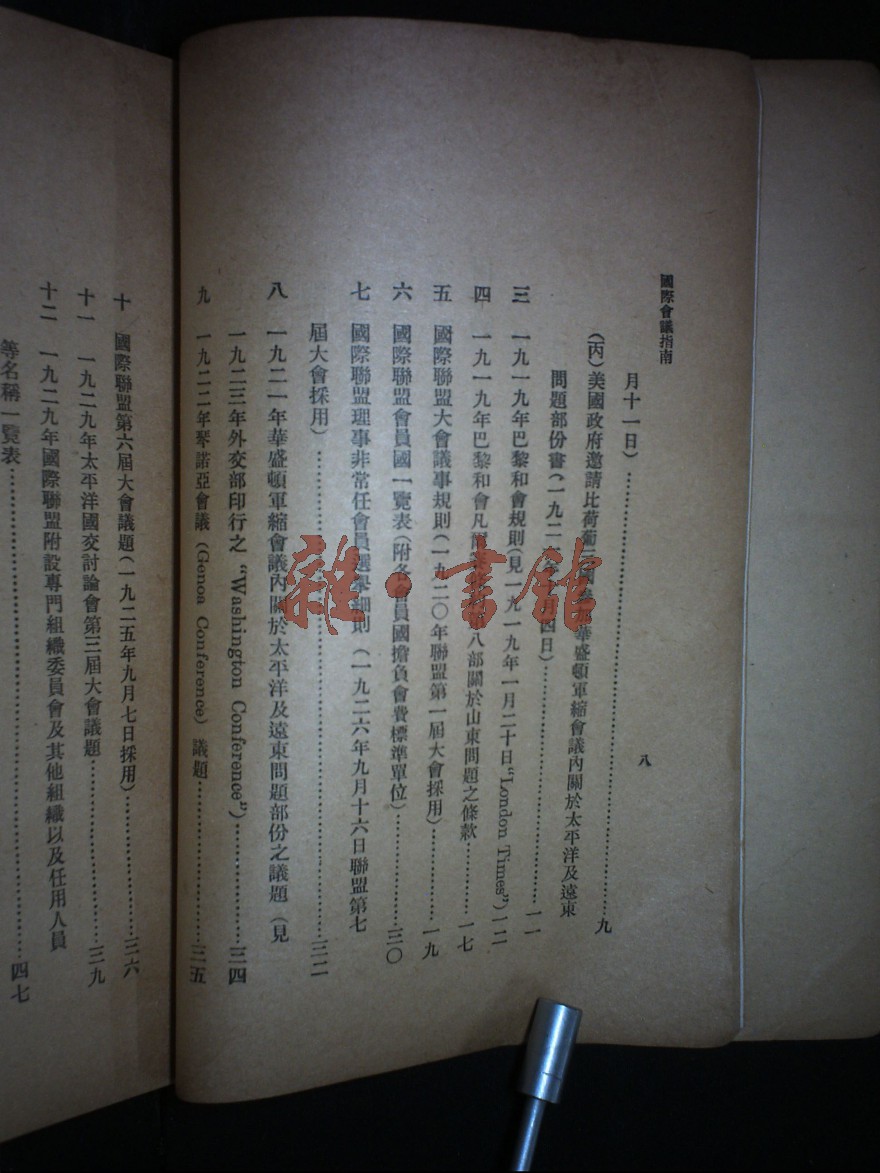 國際會議指南
八
月十一日）……九
（丙）美國政府邀請比荷葡三國參加華盛頓軍縮會議內關於太平洋及遠東
問題部份書（一九二一年 月四日）……一一
三 一九一九年巴黎和會規則（見一九一九年一月二十日“London Times”）一二
四 一九一九年巴黎和會凡爾 八部關於山東問題之條款……一七
五 國際聯盟大會議事規則（一九二〇年聯盟第一屆大會採用）……一九
六 國際聯盟會員國一覽表（附各會員國擔負會費標準單位）……三〇
七 國際聯盟理事非常任會員選舉細則（一九二六年九月十六日聯盟第七
屆大會採用）……三二
八 一九二一年華盛頓軍縮會議內關於太平洋及遠東問題部份之議題（見
一九二三年外交部印行之“Washington Conference”）……三四
九 一九二二年琴諾亞會議（Genoa Conference）議題……三五
十 國際聯盟第六屆大會議題（一九二五年九月七日採用）……三六
十一 一九二九年太平洋國交討論會第三屆大會議題……三九
十二 一九二九年國際聯盟附設專門組織委員會及其他組織以及任用人員
等名稱一覽表……四七
雜·書館